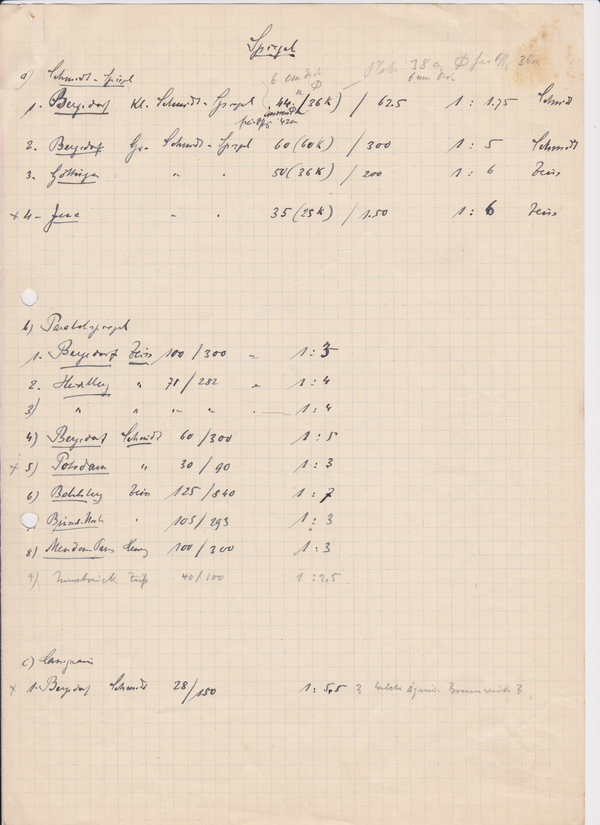 Spiegel
a) Schmidt-Spiegel
6 cm dick Platte 38 cm Φ 36 cm
6 mm dick
1. Bergedorf Kl. Schmidt-Spiegel 44 (36 K) / 62.5 1 : 1.75 Schmidt
42 cm
2. Bergedorf Gr. Schmidt-Spiegel 60 (60 K) / 300 1 : 5 Schmidt
3. Göttingen " " 50 (36 K) / 200 1 : 6 Zeiss
x 4. Jena " " 35 (25 K) / 1.50 1 : 6 Zeiss
b) Parabolspiegel
1. Bergedorf Zeiss 100 / 300 " 1 : 3
2. Heidelberg " 71 / 282 " 1 : 4
3) " " " " 1 : 4
4) Bergedorf Schmidt 60 / 300 1 : 5
x 5) Potsdam " 30 / 90 1 : 3
6) Babelsberg Zeiss 125 / 840 1 : 7
" 105 / 293 1 : 3
8) Meudon Paris Henry 100 / 300 1 : 3
9) Innsbruck Zeiß 40 / 100 1 : 2,5
c) Cassegrain
x 1. Bergedorf Schmidt 28 / 150 1 : 5,5 ? welche Brennweite ?